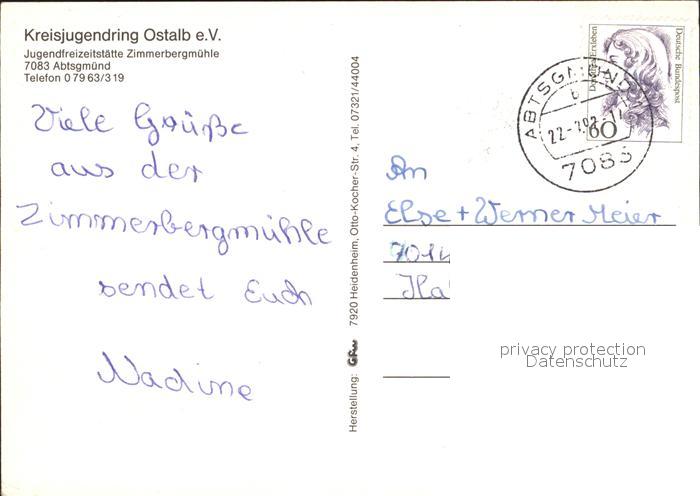 Kreisjugendring Ostalb e.V.
Jugendfreizeitstätte Zimmerbergmühle
7083 Abtsgmünd
Telefon 0 79 63/3 19
Viele Grüße
aus der
Zimmerbergmühle
sendet Euch
Nadine
Herstellung: 7920 Heidenheim, Otto-Kocher-Str. 4, Tel. 07321/44004
Deutsche Bundespost
60
ABTSGMÜND
b
7083
An
Else + Werner Meier
701
Ha
privacy protection
Datenschutz